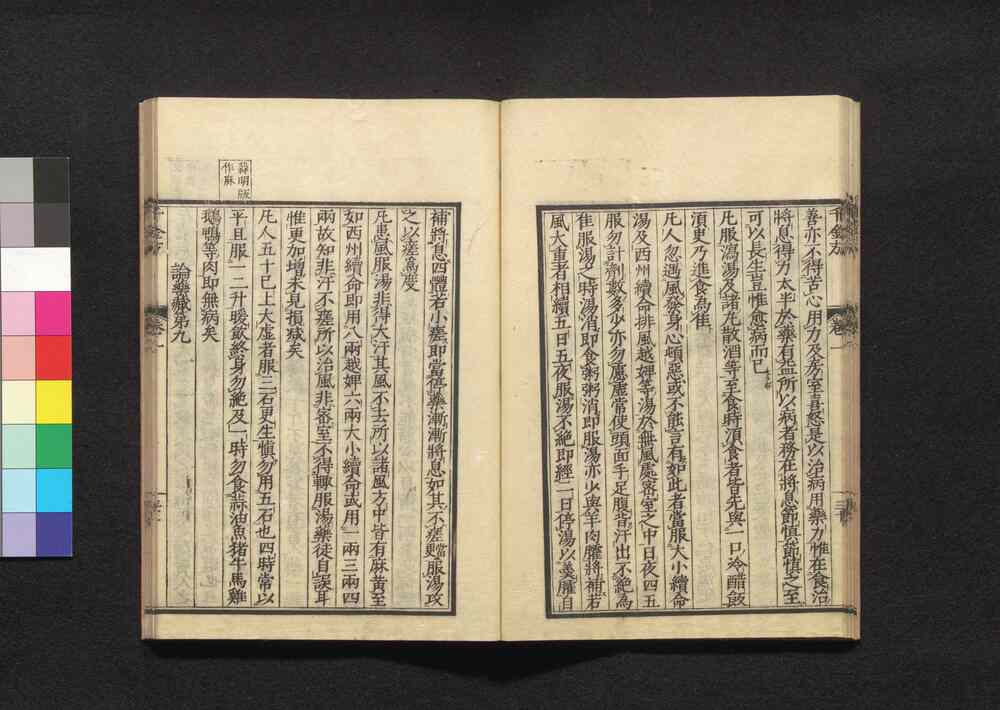 善亦不得苦心用力及房室喜怒是以治病用藥力惟在食治
將息得力太半於藥有益所以病者務在將息節慎節慎之至
可以長生豈惟愈病而已
凡服瀉湯及諸丸散酒等至食時須食者皆先與一口冷醋飯
須臾乃進食為佳
凡人忽遇風發身心頓惡或不能言有如此者當服大小續命
湯及西州續命排風越婢等湯於無風處密室之中日夜四五
服勿計劑數多少亦勿慮虛常使頭面手足腹背汗出不絕為
佳服湯之時湯消即食粥粥消即服湯亦少與羊肉臛將補若
風大重者相續五日五夜服湯不絕即經二日停湯以羹臛自
補將息四體若小瘥即當停藥漸漸將息如其不瘥當更服湯攻
之以瘥為度
凡患風服湯非得大汗其風不去所以諸風方中皆有麻黃至
如西州續命即用八兩越婢六兩大小續命或用一兩三兩四
兩故知非汗不瘥所以治風非密室不得輒服湯藥徒自誤耳
惟更加增未見損減矣
凡人五十已上大虛者服三石更生慎勿用五石也四時常以
平旦服一二升暖飲終身勿絕及一時勿食蒜油魚猪牛馬雞
鵝鴨等肉即無病矣
論藥藏第九
蒜明版
作麻